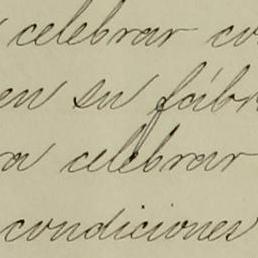 celebrar
en su
celebrar
condiciones